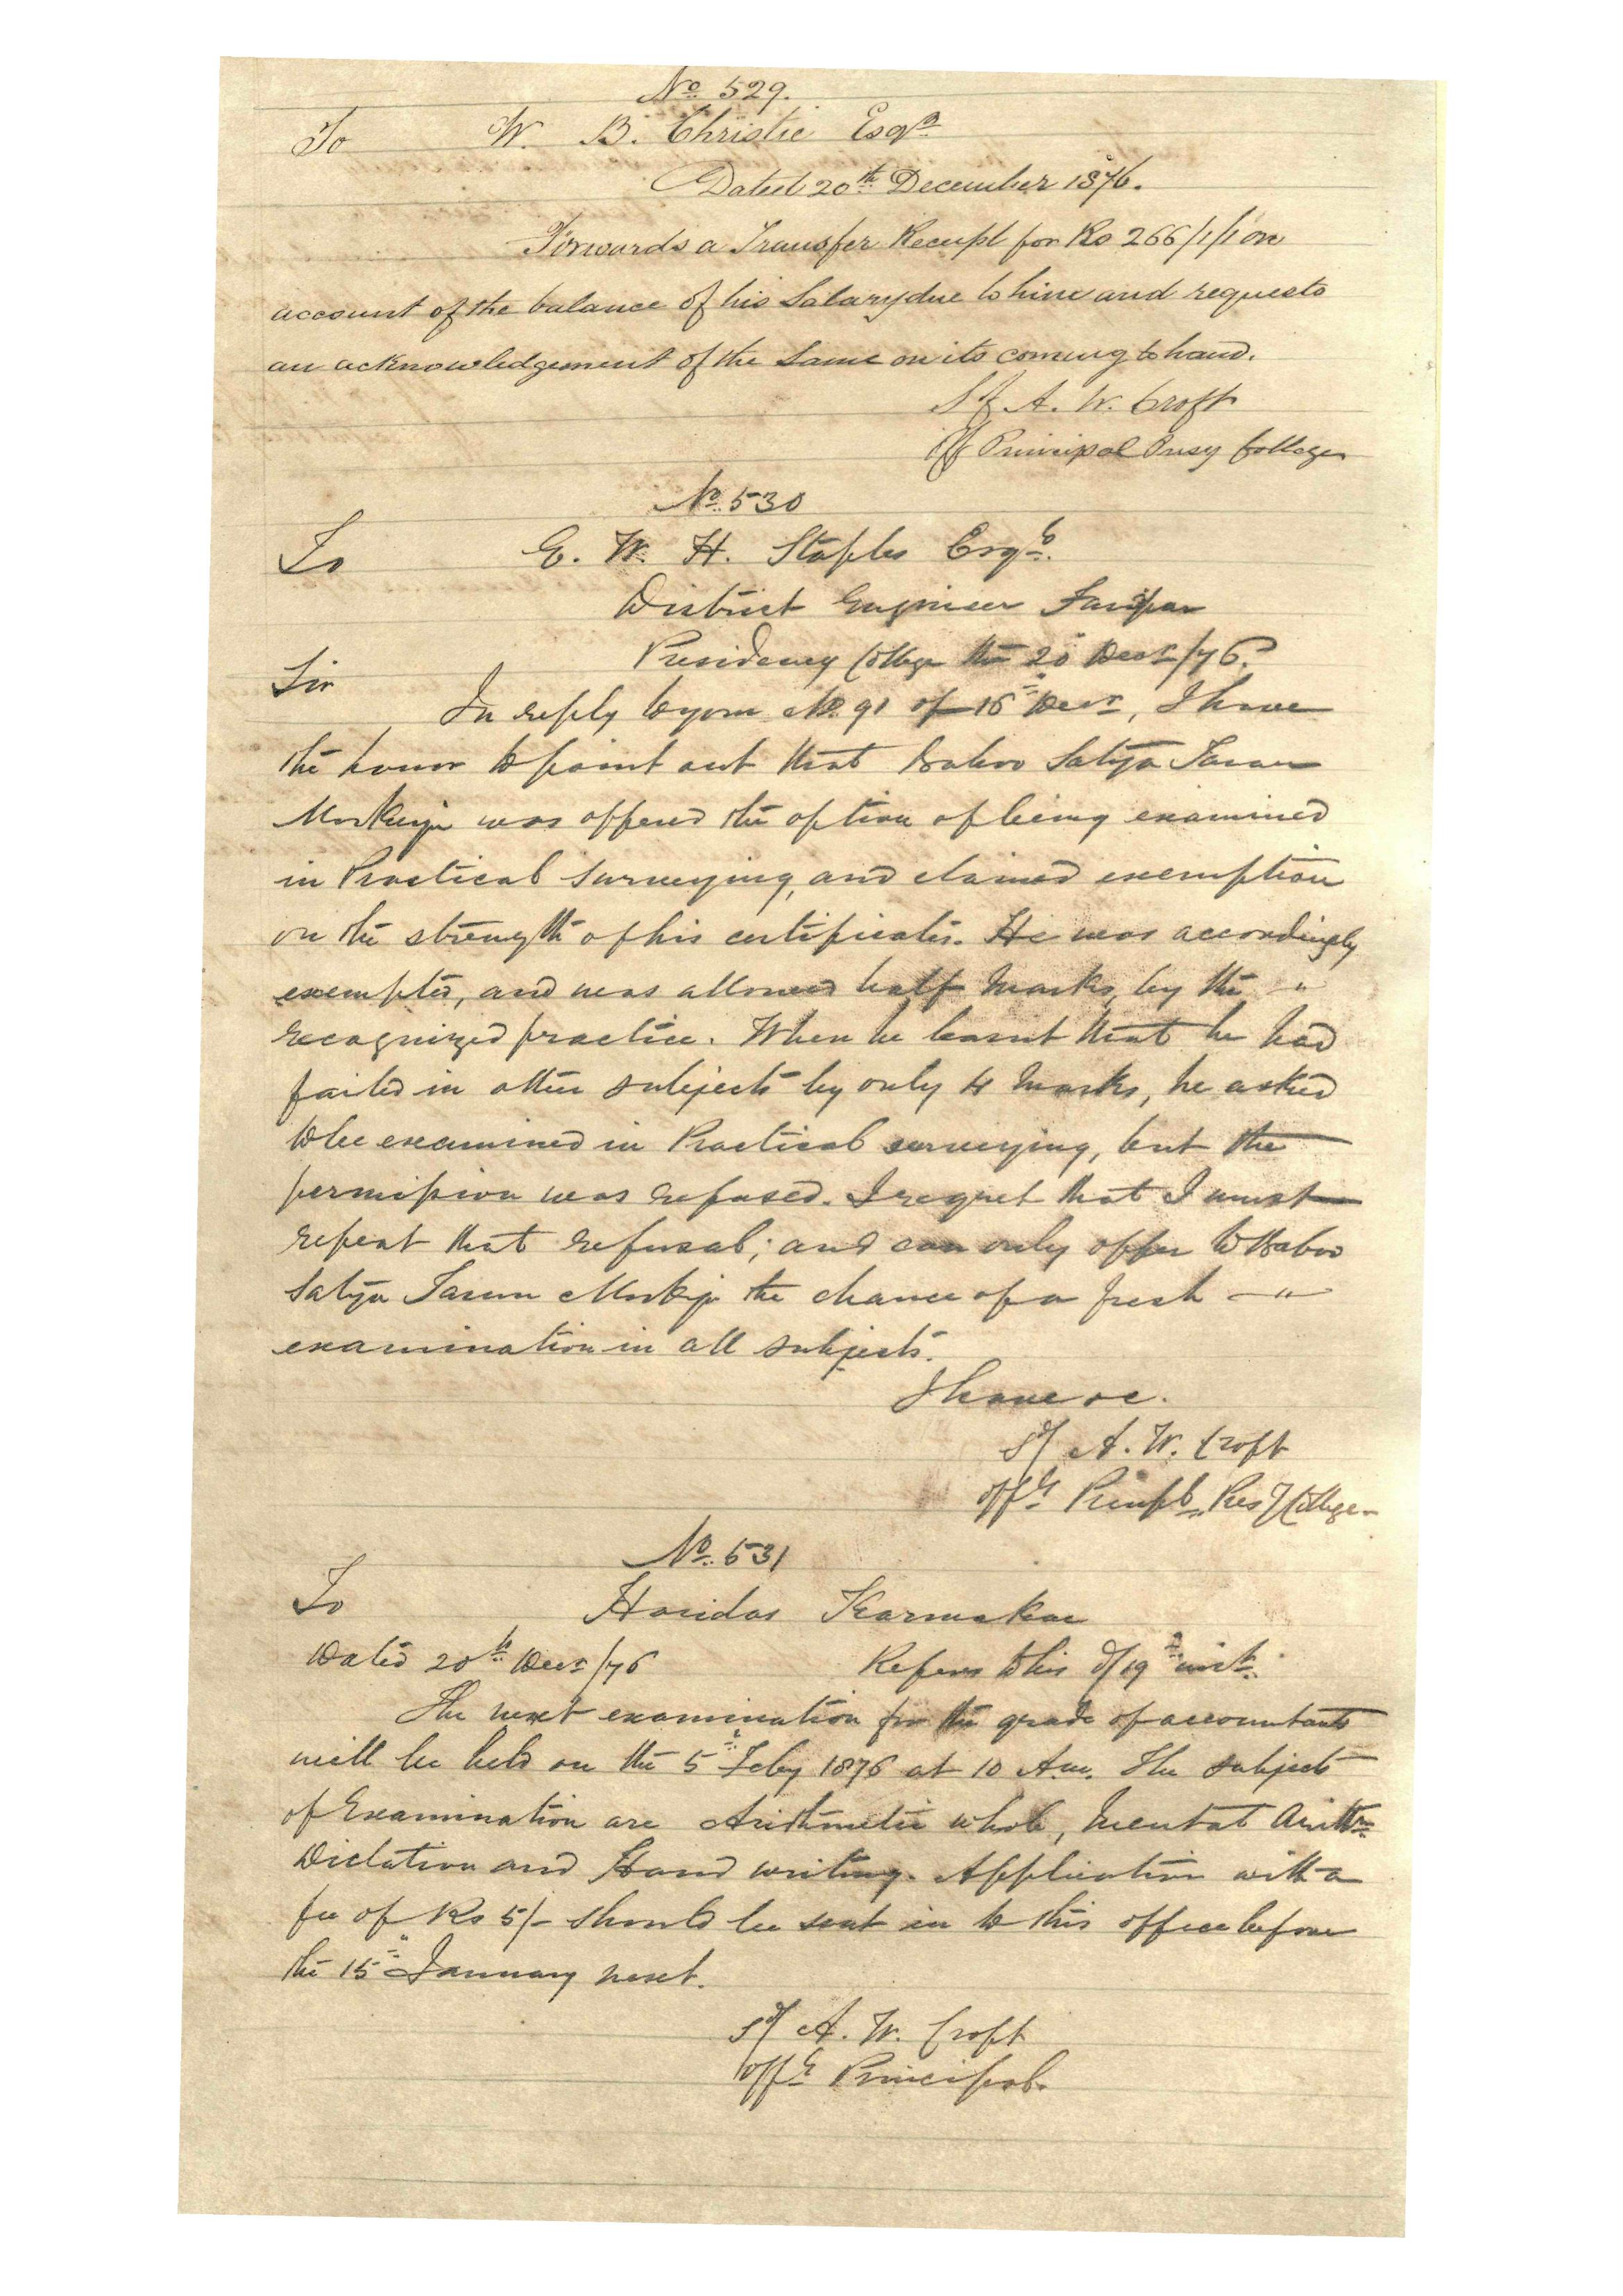 No. 529.
To W. B. Christie Esqr.
Dated 20th December 1876.
Forwards a Transfer Receipt for Rs 266/1/1 on
account of the balance of his Salary due to him and requests
an acknowledgement of the same on its coming to hand.
Sd/ A. W. Croft
Off Principal Presy College
No. 530
To E. W. H. Staples Esqre.
District Engineer
Presidency College the 20th Decr /76.
Sir
In reply to your No. 91 of 16th Decr, I have
the honor to point out that Baboo Satya Taran
Mookerjee was offered the option of being examined
in Practical Surveying, and claimed exemption
on the strength of his certificates. He was accordingly
exempted, and was allowed half marks, by the "
recognized practice. When he learnt that he had
failed in other subjects by only 4 marks, he asked
to be examined in Practical surveying, but the
permission was refused. I regret that I must
repeat that refusal; and can only offer to Baboo
Satya Taran the chance of a fresh — "
examination in all subjects.
I have &c.
Sd/ A. W. Croft
Offg Principl. Presy College
No. 531
To Haridas Karmakar
Dated 20th Decr /76 Refers to his d/19th inst.
The next examination for the grade of accountants
will be held on the 5th Feby 1876 at 10 A.m. The subjects
of Examination are Arithmetic whole, Mental Arithm.
Dictation and Hand writing. Application with a
fee of Rs 5/- should be sent in to this office before
the 15th January next.
Sd/ A. W. Croft
Offg Principal.